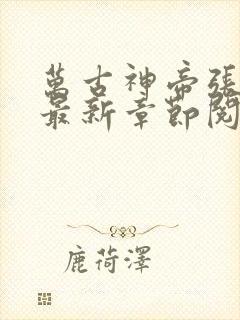 萬古神帝張
最新章節閱
鹿荷澤